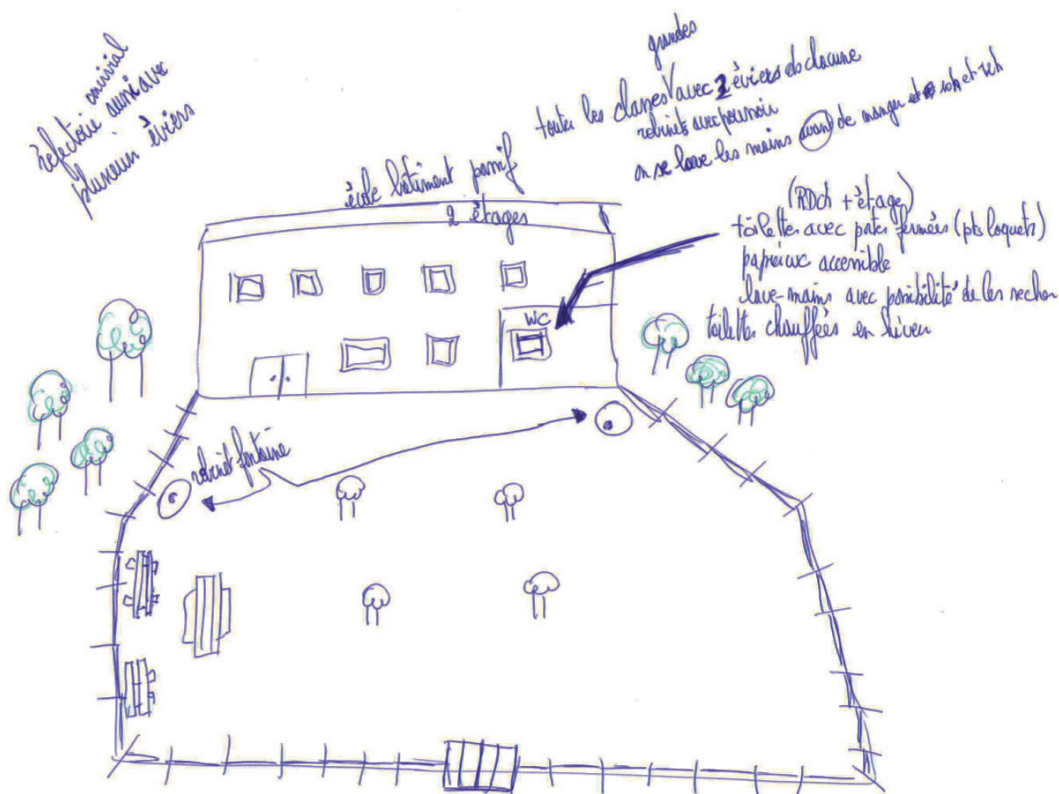 réfectoire convivial
aussi avec
plusieurs éviers
grandes
toutes les classes avec 2 éviers ds chacune
robinets avec poussoir
on se lave les mains avant de manger et
école bâtiment passif
2 étages
(RDch + étage)
toilettes avec portes fermées (pts loquets)
papier wc accessible
lave-mains avec possibilité de les sécher
toilettes chauffées en hiver
WC
robinet fontaine